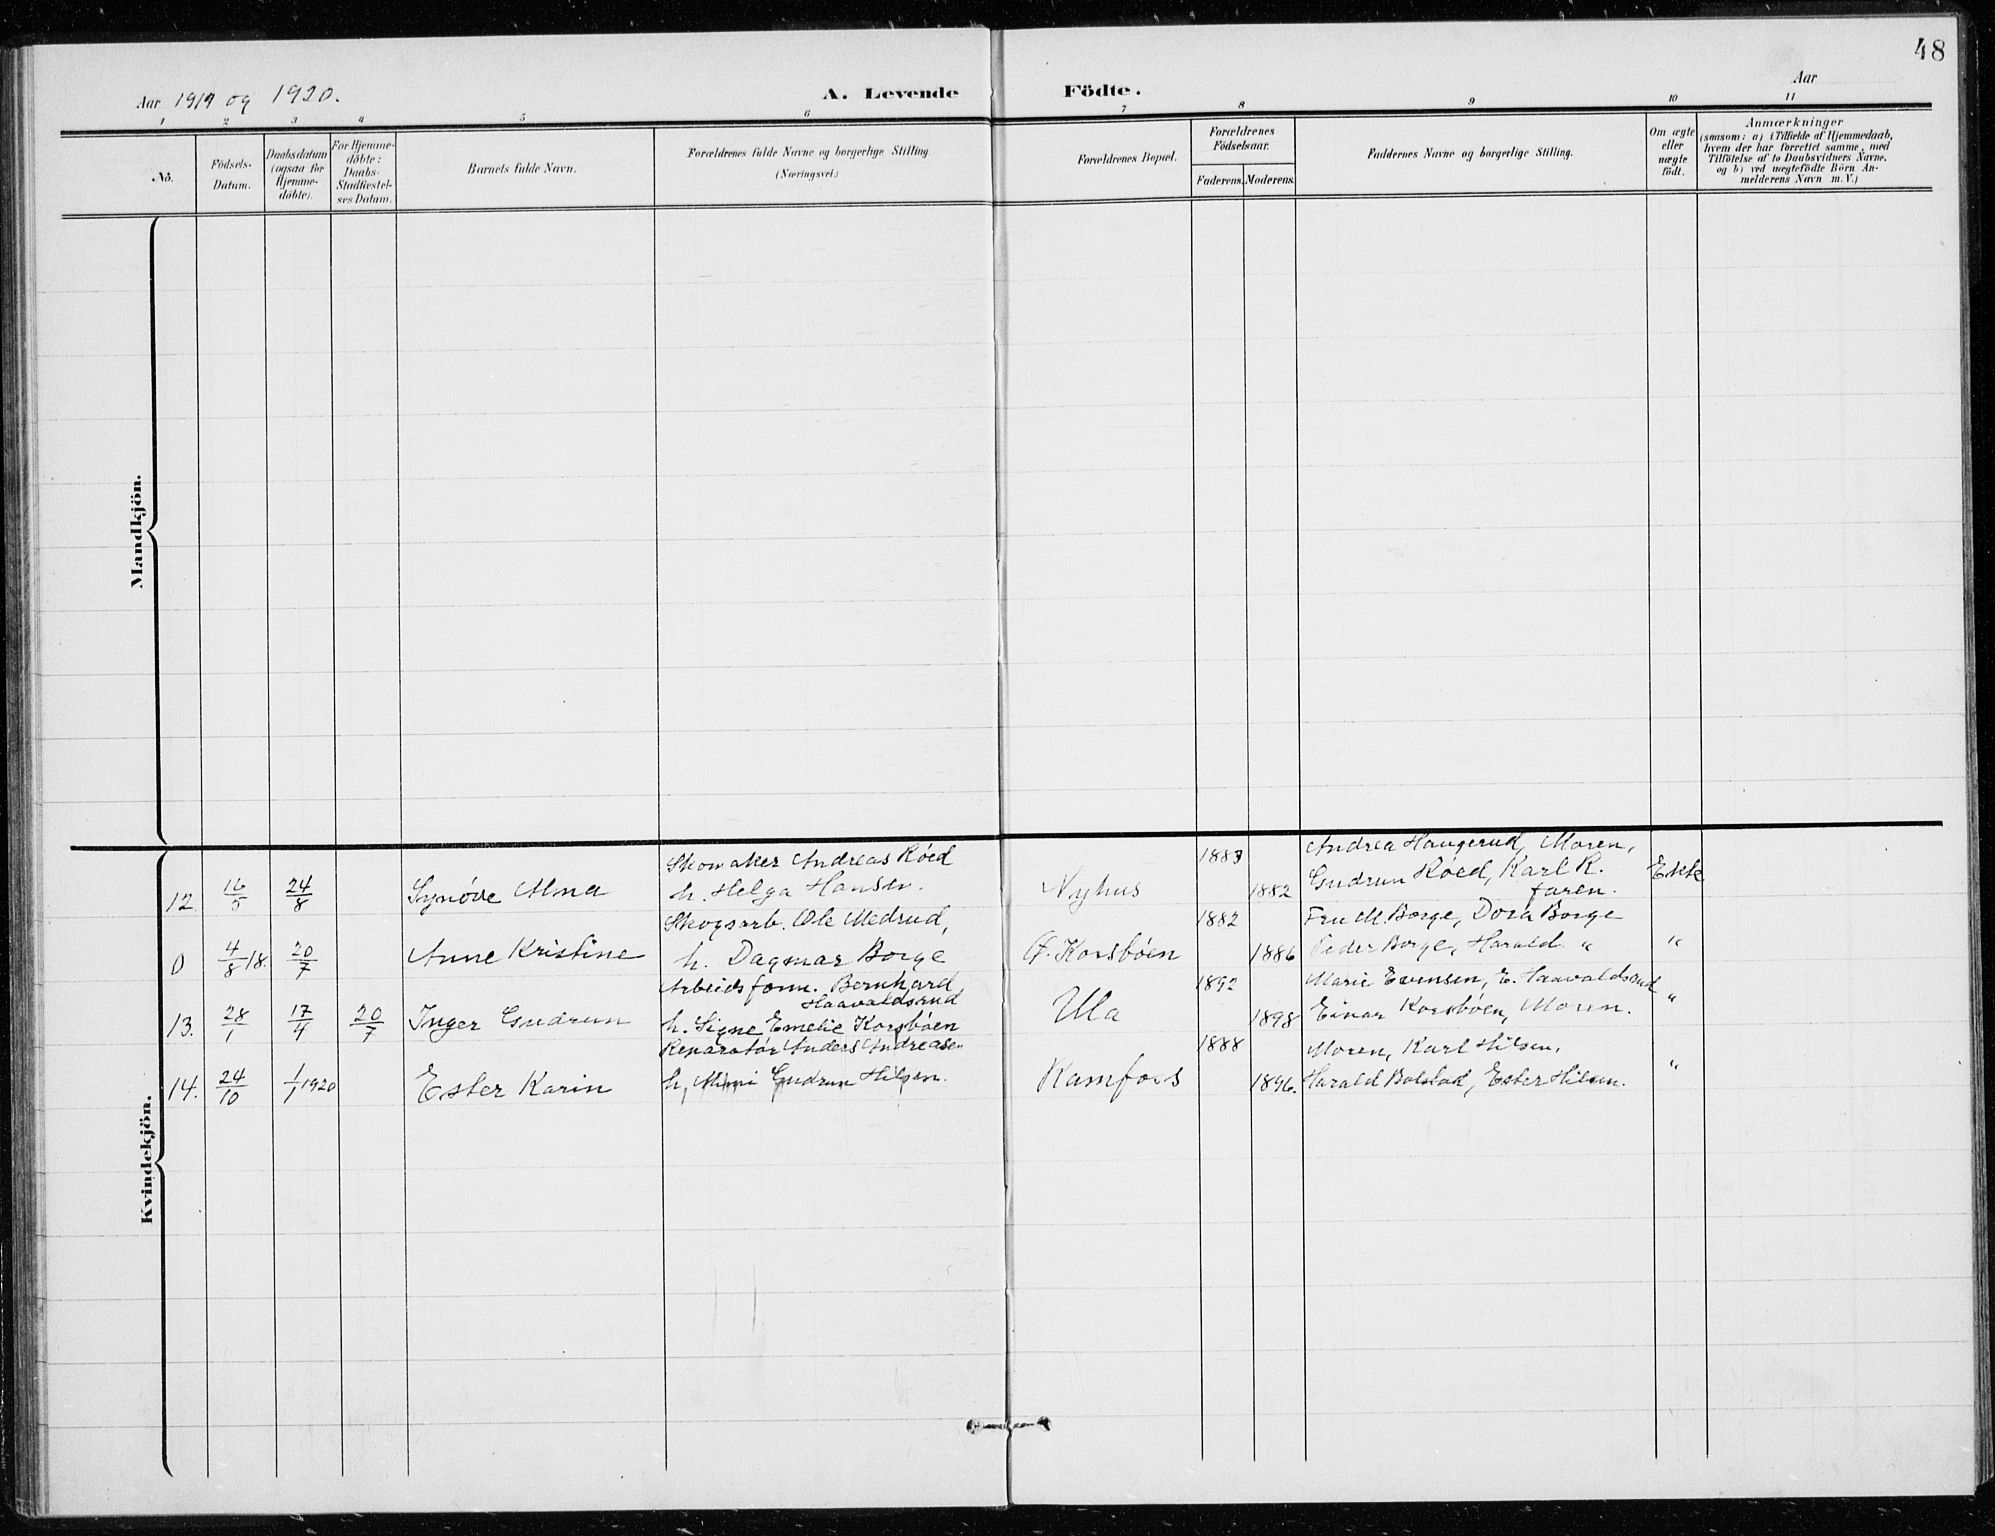 48
Aar 1919 og 1920.
A. Levende Födte.
Aar
1 2 3 4 5 6 7 8 9 10 11
No.
Födsels-
Datum.
Daabsdatum
(ogsaa for
Hjemme-
døbte).
For Hjemme-
døbte:
Daabs-
Stadfæstel-
ses Datum.
Barnets fulde Navn.
Forældrenes fulde Navne og borgerlige Stilling.
(Næringsvei.)
Forældrenes Bopæl.
Forældrenes
Födselsaar.
Faderens. Moderens.
Faddernes Navne og borgerlige Stilling.
Om ægte
eller
uægte
födt.
Anmærkninger
(saasom: a) i Tilfælde af Hjemmedaab,
hvem der har forrettet samme, med
Tilföielse af to Daabsvidners Navne,
og b) ved uægtefödte Börn An-
melderens Navn m. V.)
Mandkjön.
Kvindekjön.
Skomaker Andreas Røed 1883 Andrea Haugerud, Moren,
12. 16/5 24/8 Synøve Alma h. Helga Hansen. Nyhus 1882 Gudrun Røed, Karl R. Ekte
faren.
Skogsarb. Ole Medrud, 1882 Fru M. Borge, Dora Borge
0 4/8 18. 20/7 Anne Kristine h. Dagmar Borge Korsbøen 1886 Peder Borge, Harald " "
Arbeidsform. Bernhard 1892 Marie Evensen, E. Haavaldsrud
Haavaldsrud
13. 28/1 17/4 20/7 Inger Gudrun h. Signe Emelie Korsbøen Ula 1898 Einar Korsbøen, Moren. "
Reparatør Anders Andreasen 1888 Moren, Karl Hilsen,
14. 24/10 1/1 1920 Ester Karin h. Mimi Gudrun Hilsen. Kamfoss 1896. Harald Bolstad, Ester Hilsen. "